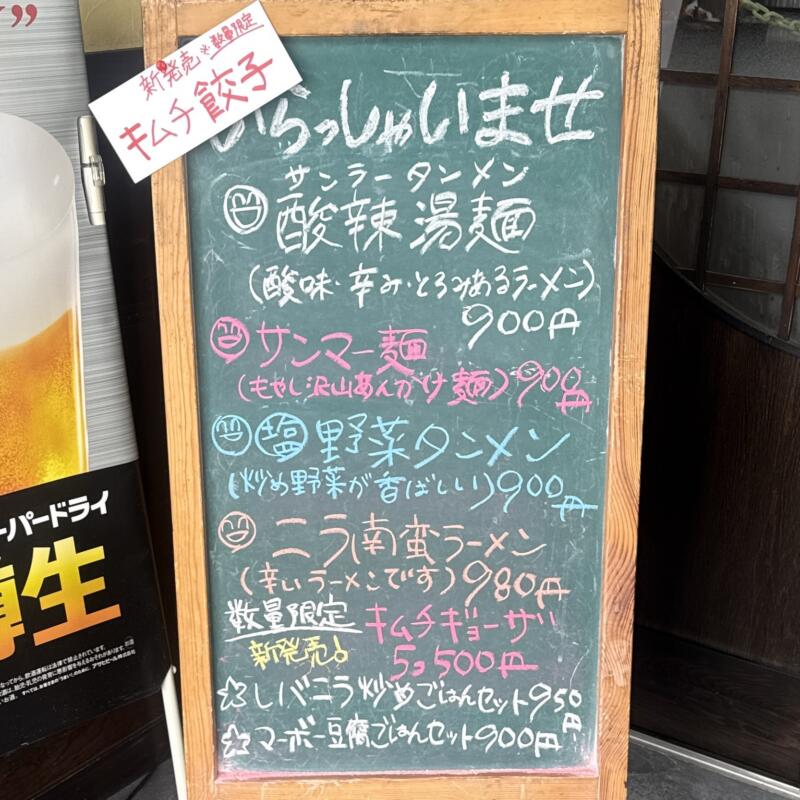 新発売※数量限定
キムチ餃子
いらっしゃいませ
サンラータンメン
酸辣湯麺
(酸味・辛み・とろみあるラーメン)
900円
サンマー麺
(もやし沢山あんかけ麺)900円
塩野菜タンメン
(炒め野菜が香ばしい)900円
ニラ南蛮ラーメン
(辛いラーメンです)980円
数量限定 キムチギョーザ
新発売! 5コ500円
☆レバニラ炒めごはんセット950円
☆マーボー豆腐ごはんセット900円
ーパードライ
樽生